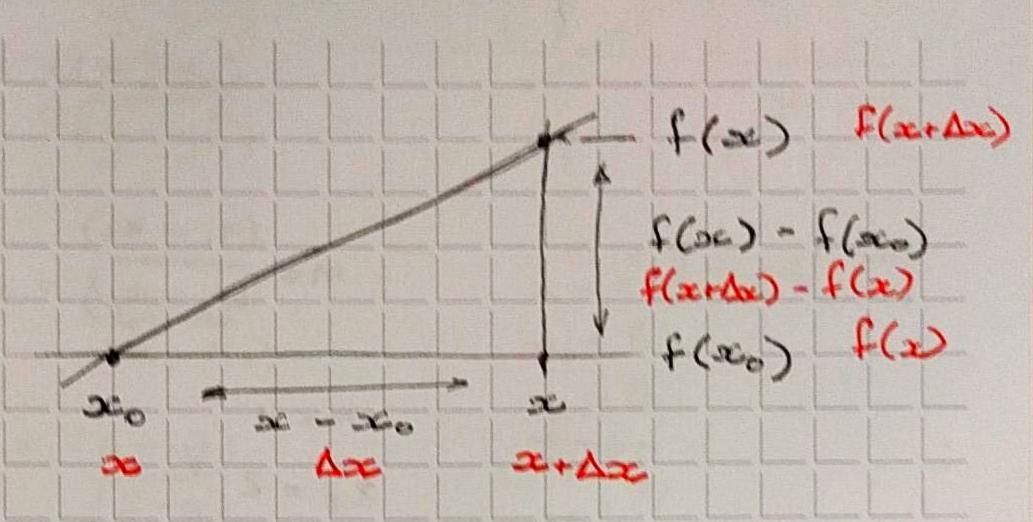 f(x) f(x+Δx)
f(x) - f(x₀)
f(x+Δx) - f(x)
f(x₀) f(x)
x₀ x - x₀ x
x Δx x+Δx